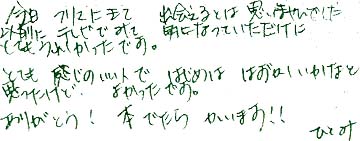 今日 フリマに来て 出会えるとは 思いませんでした
以前に テレビでみて 気になっていただけに
とてもうれしかったです。
とても 感じのいい人で はじめは はずかしいかなと
思ったけど よかったです。
ありがとう! 本でたら かいます!!
ひとみ